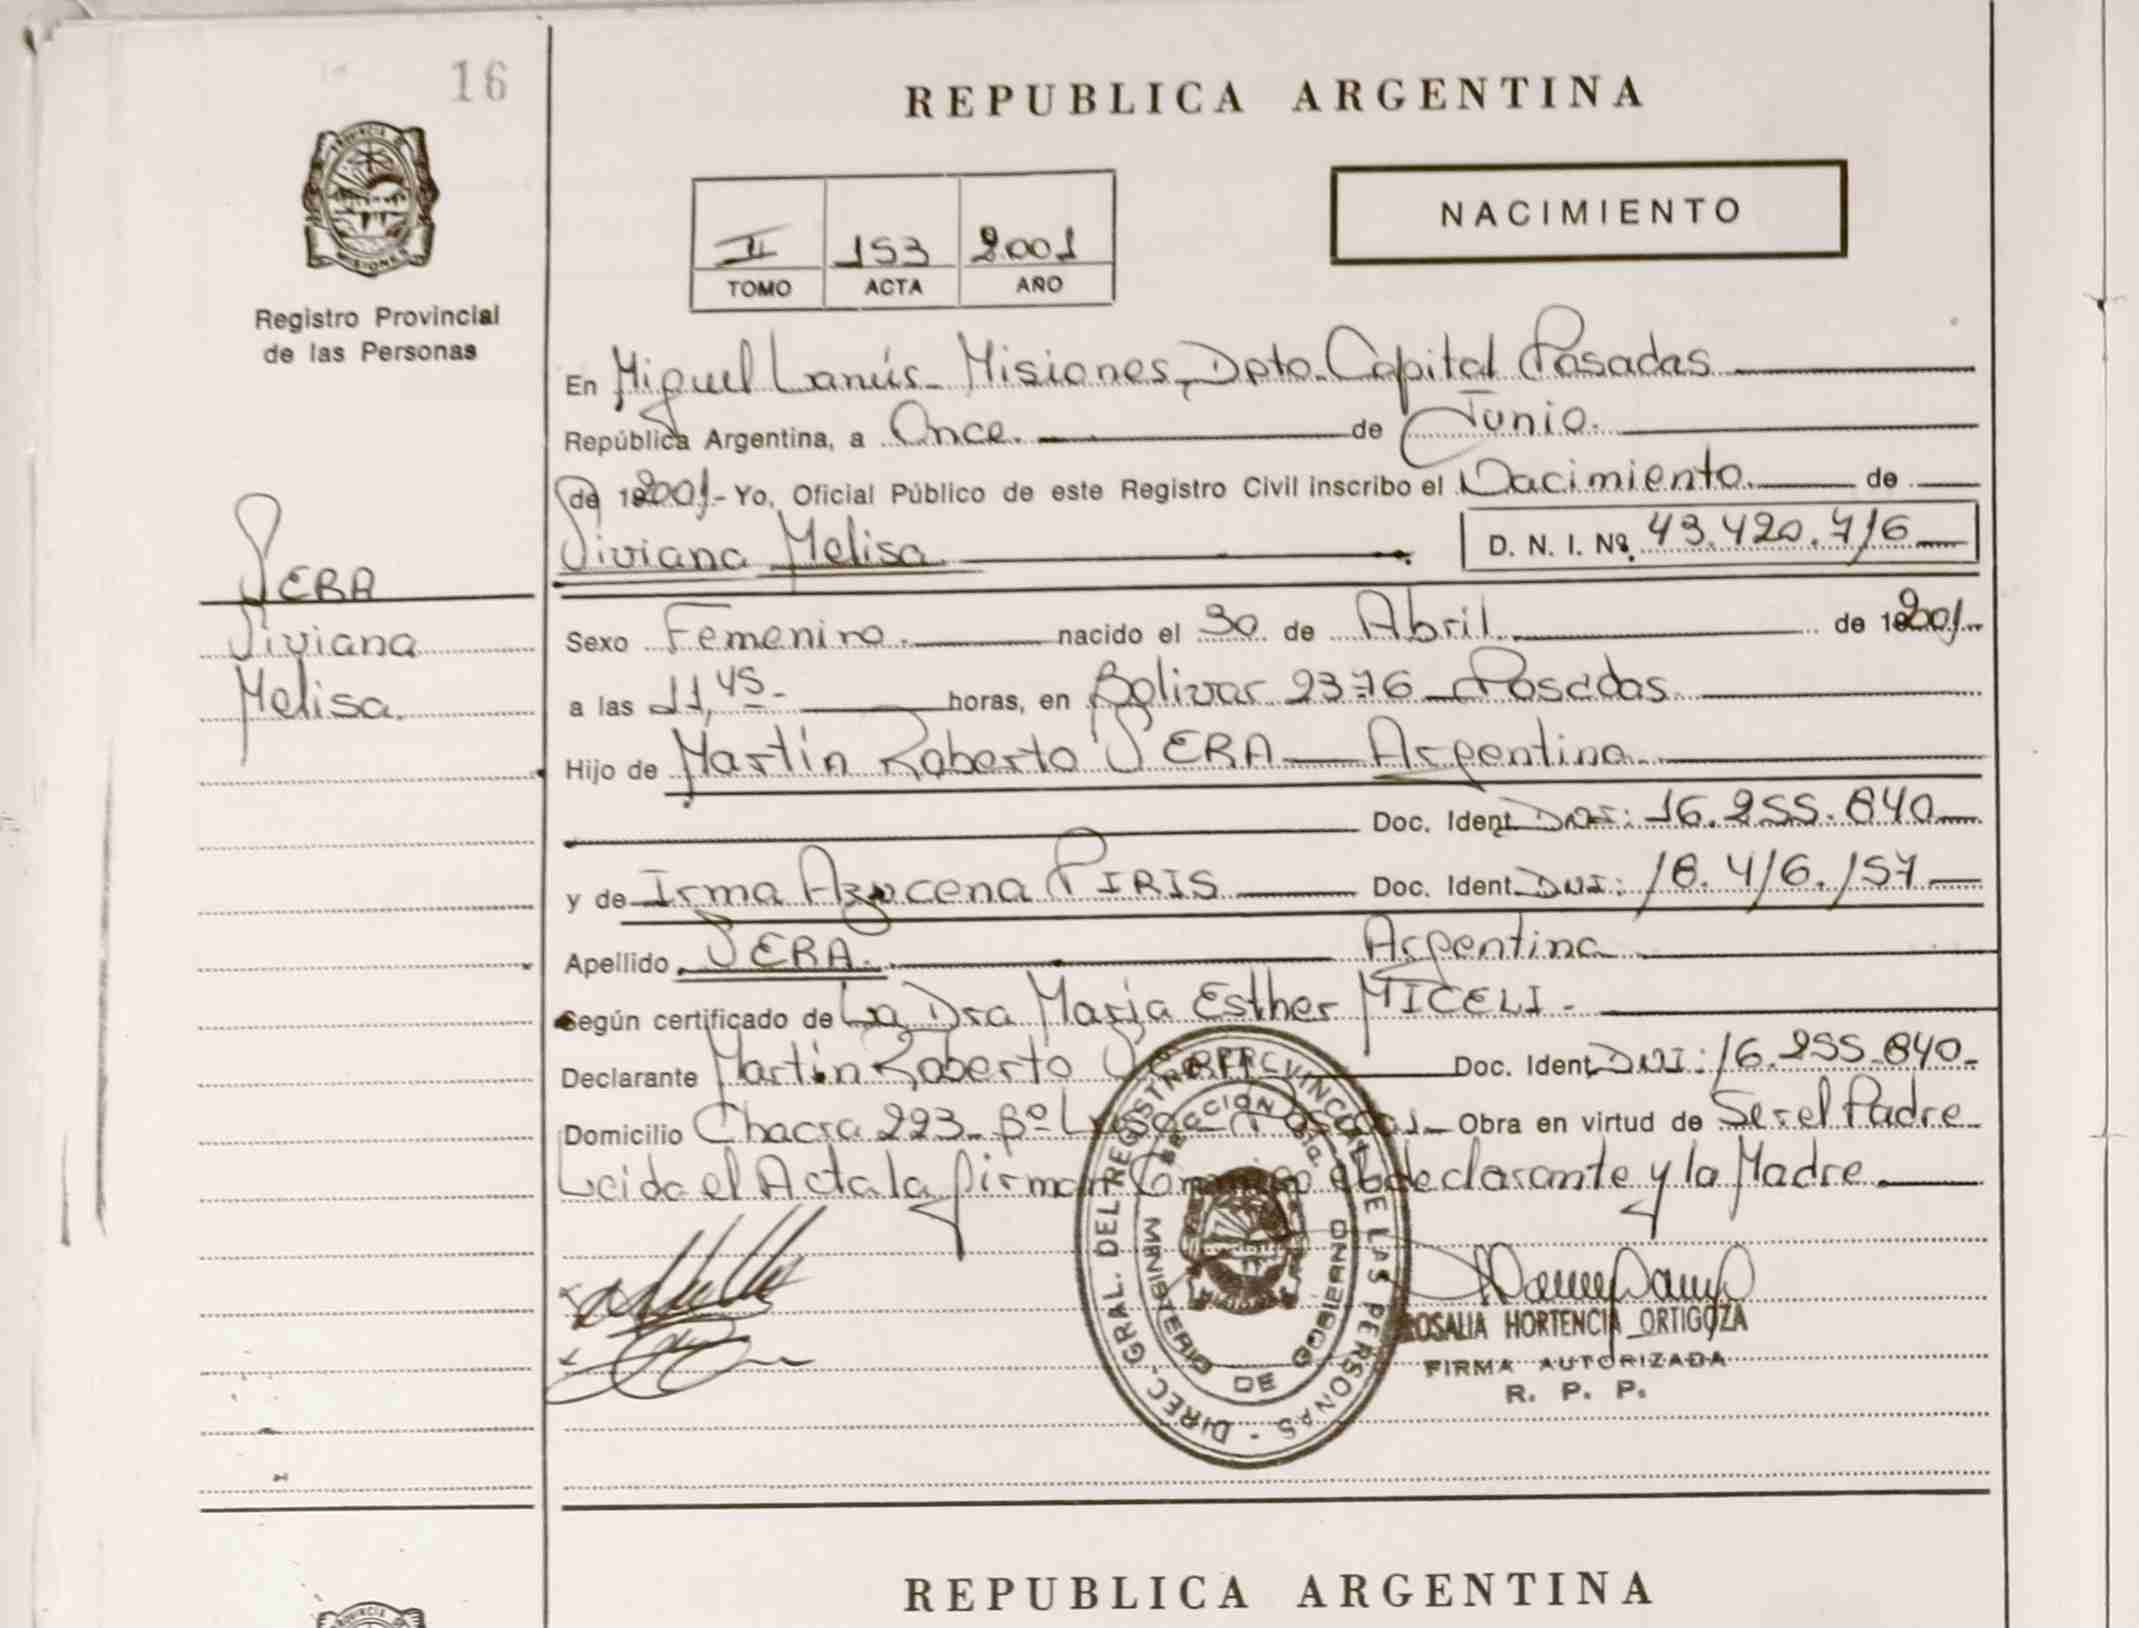 16
REPUBLICA ARGENTINA
PROVINCIA DE
MISIONES
Registro Provincial
de las Personas
NACIMIENTO
II 153 2001
TOMO ACTA AÑO
En Miguel Lanús - Misiones, Dpto. Capital Posadas
República Argentina, a Once. de Junio.
de 192001.- Yo, Oficial Público de este Registro Civil inscribo el Nacimiento. de
Viviana Melisa D. N. I. Nº. 43.420.716
VERA
Viviana
Melisa.
Sexo Femenino. nacido el 30 de Abril. de 192001.
a las 11,45- horas, en Bolivar 2376 - Posadas.
Hijo de Martín Roberto VERA Argentino.
Doc. Ident. DNI: 16.255.840
y de Irma Azucena PIRIS Doc. Ident. DNI: 18.416.157
Apellido VERA. Argentina
Según certificado de La Dra María Esther MICELI -
Declarante Martín Roberto Doc. Ident. DNI: 16.255.840-
Domicilio Chacra 223- Bº Obra en virtud de Ser el Padre
Leida el Acta la firman Conmigo el declarante y la Madre
DIREC. GRAL. DEL REGISTRO PROVINCIAL DE LAS PERSONAS -
SECCION
MINISTERIO DE GOBIERNO
ROSALIA HORTENCIA ORTIGOZA
FIRMA AUTORIZADA
R. P. P.
REPUBLICA ARGENTINA